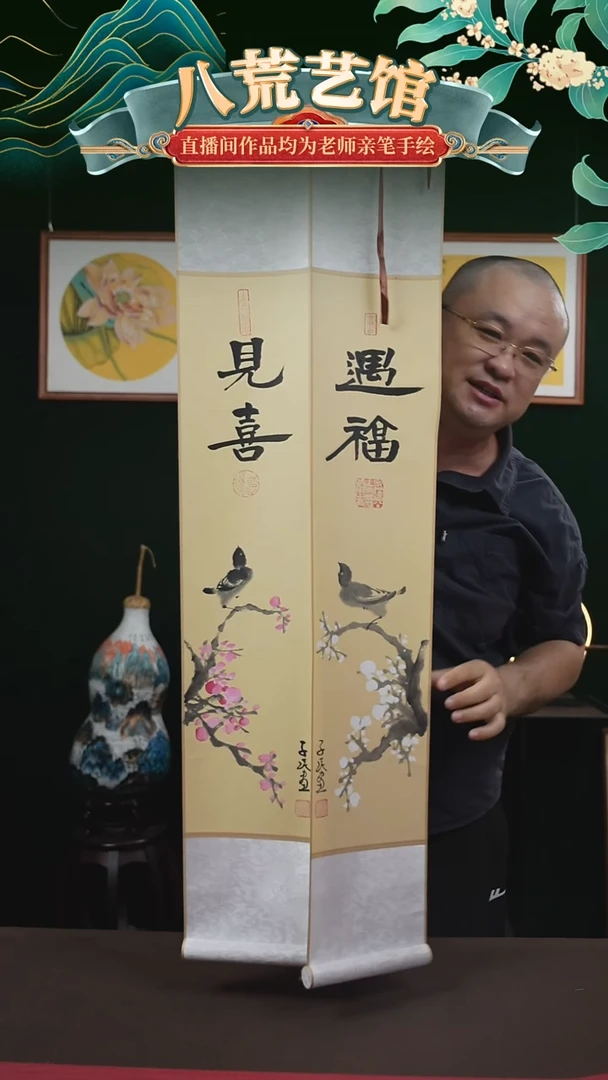 八荒艺馆
直播间作品均为老师亲笔手绘
遇福
見喜
子民画
子民画